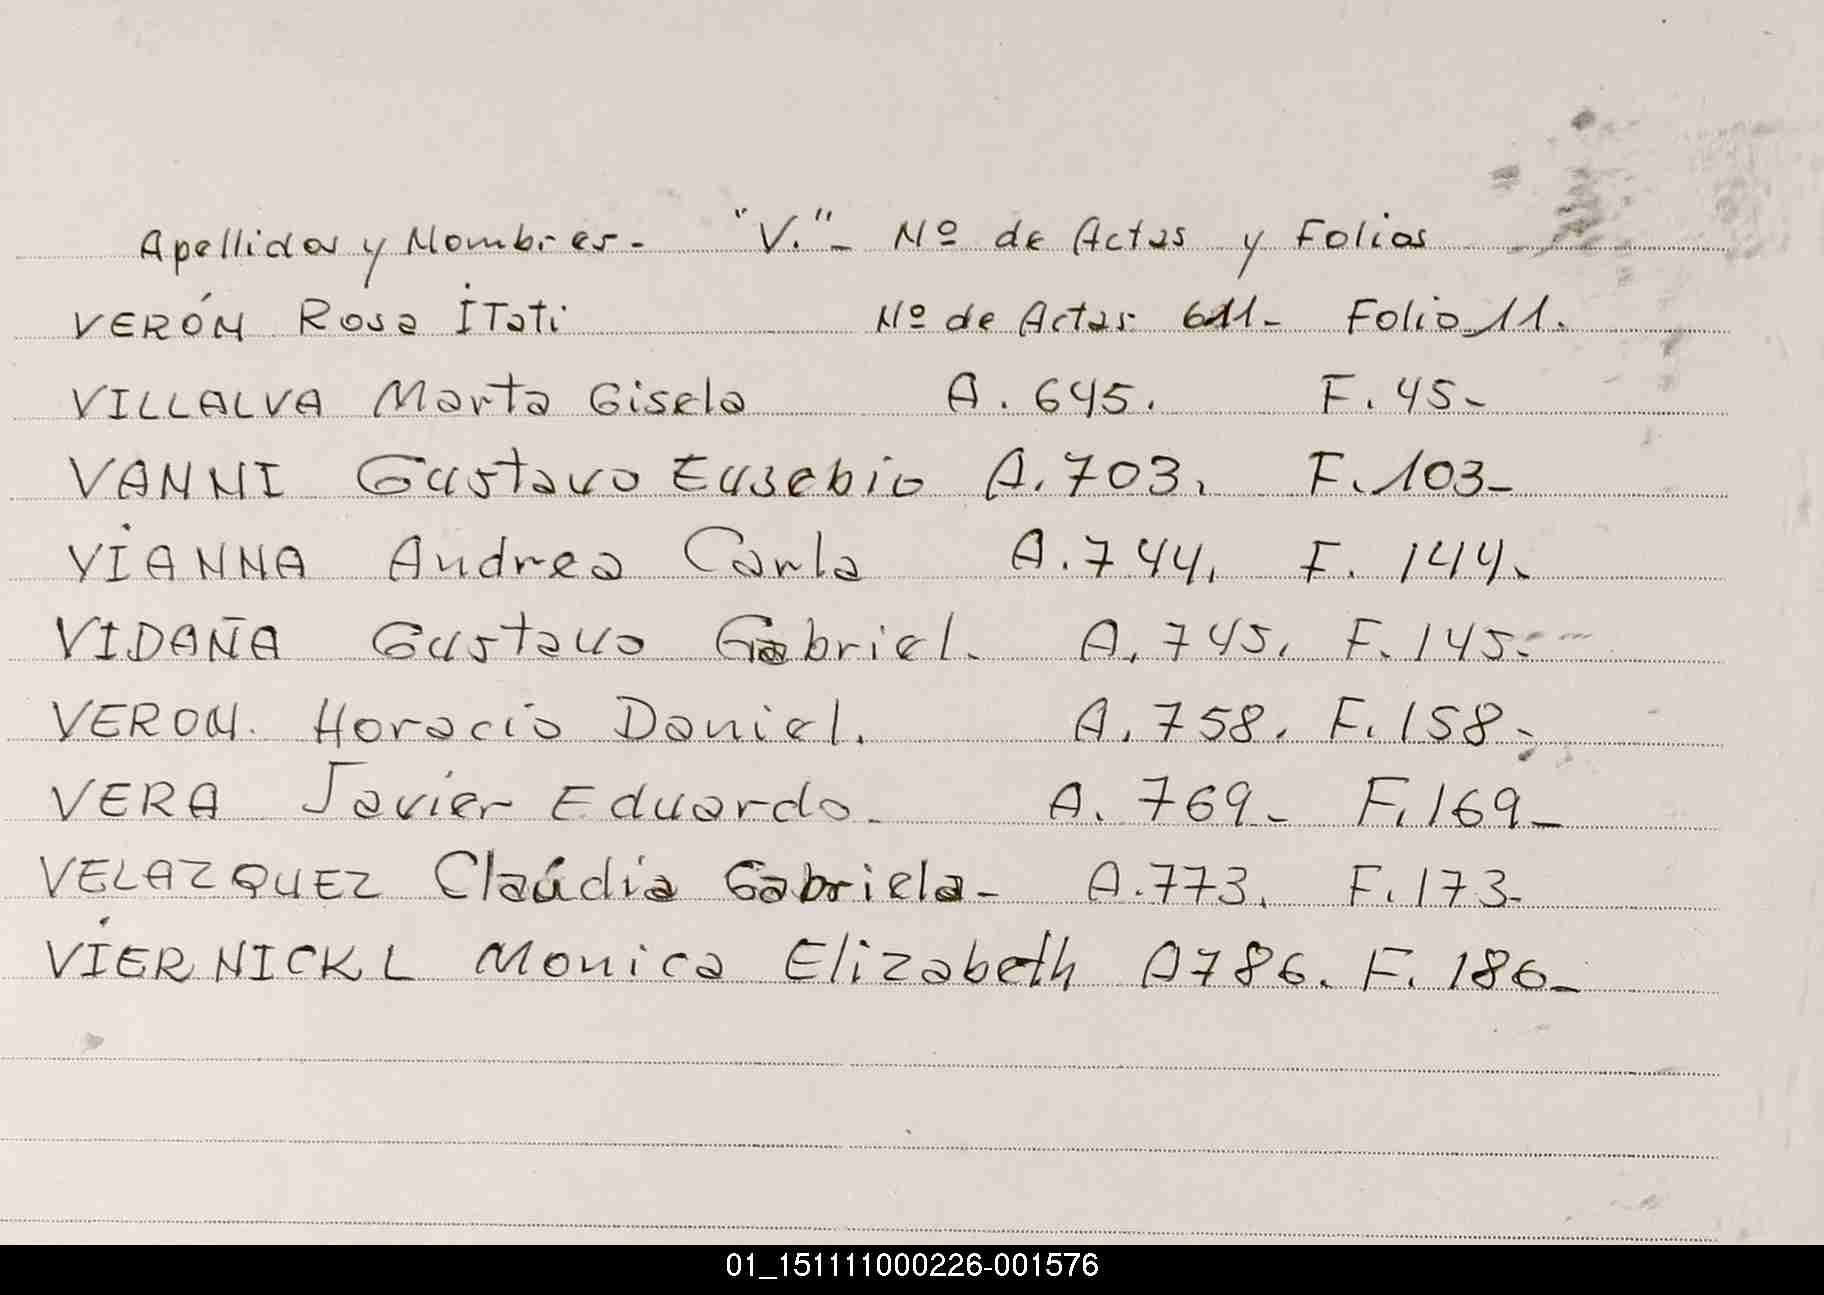 Apellidos y Nombres - "V." - Nº de Actas y Folios
VERÓN Rosa Itati Nº de Actas 611 - Folio 11.
VILLALVA Marta Gisela A. 645. F. 45 -
VANNI Gustavo Eusebio A. 703. F. 103 -
VIANNA Andrea Carla A. 744. F. 144.
VIDAÑA Gustavo Gabriel. A. 745. F. 145. -
VERON. Horacio Daniel. A. 758. F. 158 -
VERA Javier Eduardo - A. 769 - F. 169 -
VELAZQUEZ Claúdia Gabriela - A. 773. F. 173 -
VIERNICKL Monica Elizabeth A 786. F. 186 -
01_151111000226-001576